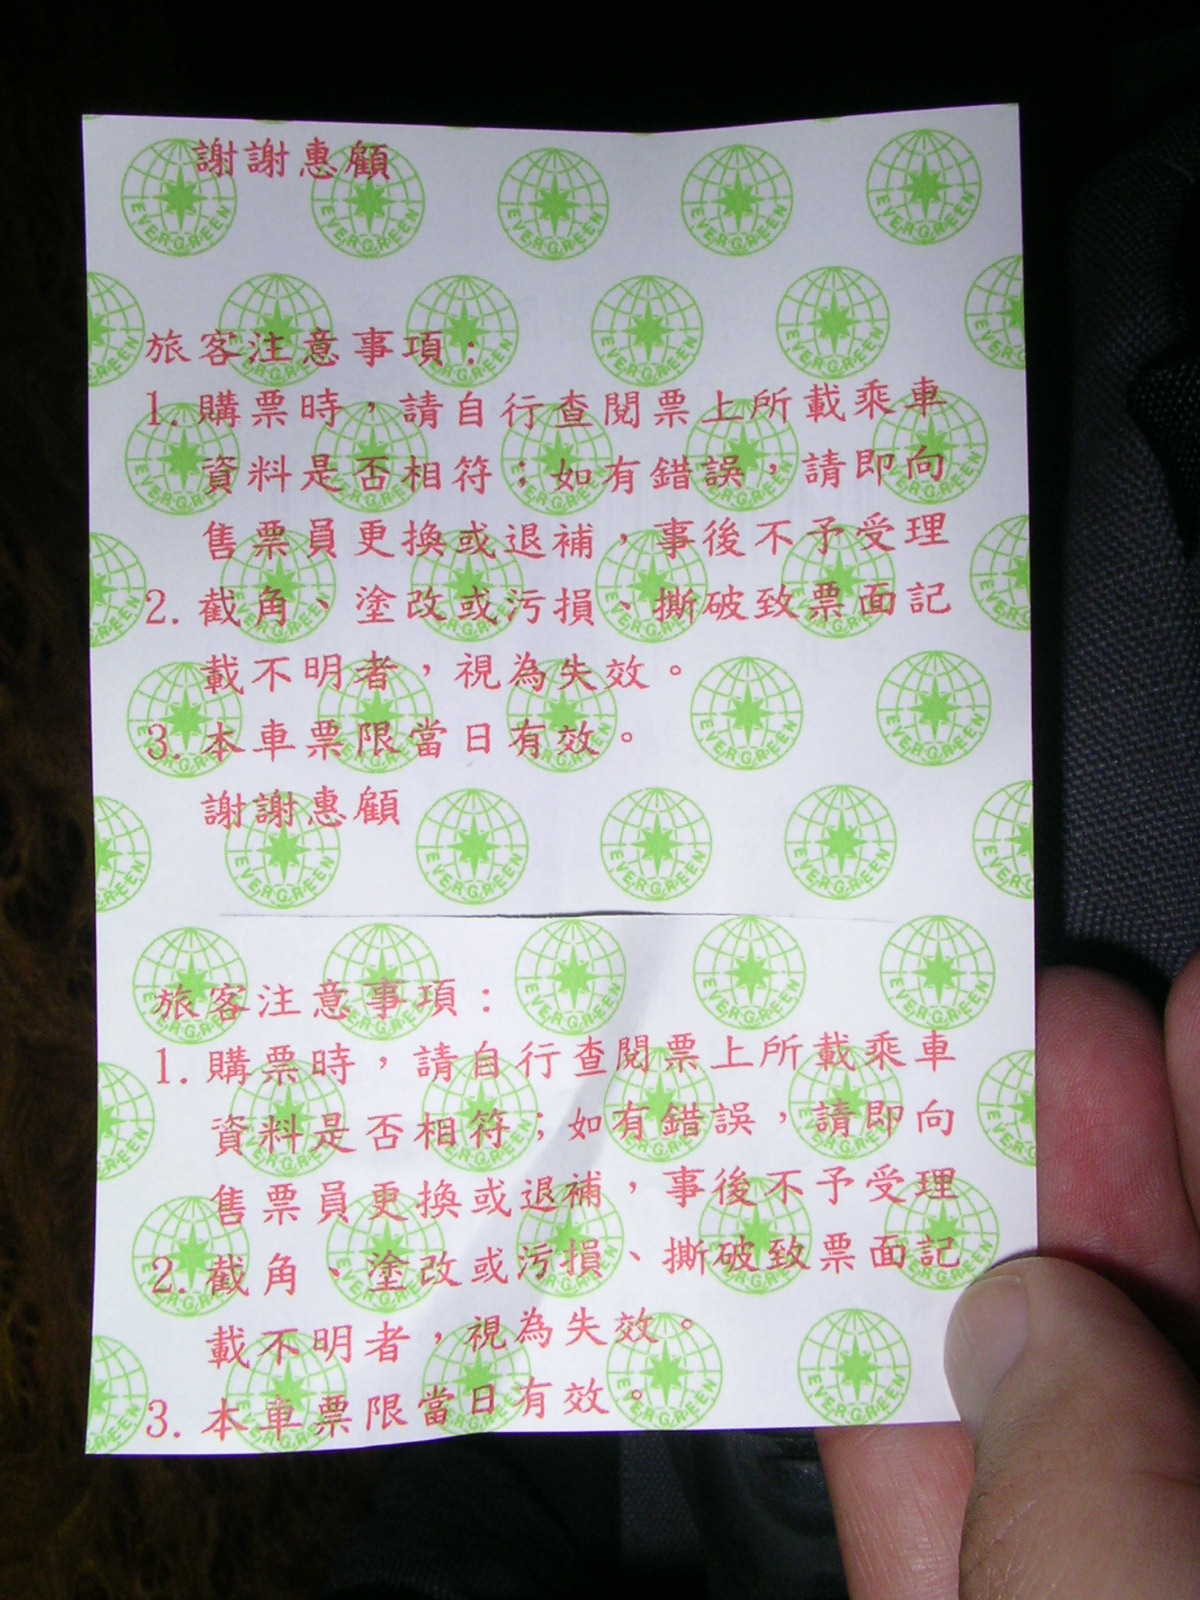 謝謝惠顧
旅客注意事項：
1. 購票時，請自行查閱票上所載乘車
資料是否相符；如有錯誤，請即向
售票員更換或退補，事後不予受理
2. 截角、塗改或污損、撕破致票面記
載不明者，視為失效。
3. 本車票限當日有效。
謝謝惠顧
旅客注意事項：
1. 購票時，請自行查閱票上所載乘車
資料是否相符；如有錯誤，請即向
售票員更換或退補，事後不予受理
2. 截角、塗改或污損、撕破致票面記
載不明者，視為失效。
3. 本車票限當日有效。
EVERGREEN